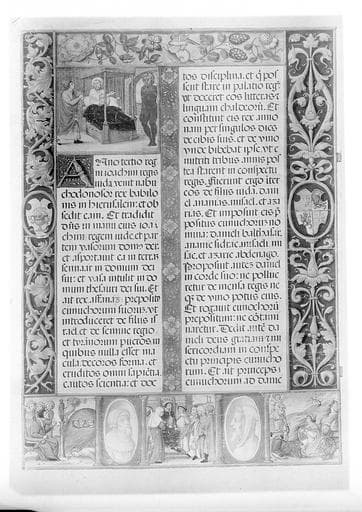 Anno tertio reg
ni ioachim regis
iuda venit nabu
chodonosor rex babilo
nis in hierusalem: et ob
sedit eam. Et tradidit
dns in manu eius ioa
chim regem iude et par
tem vasorum domus dei:
et asportauit ea in terra
sennaar in domum dei
sui: et vasa intulit in do
mum thesauri dei sui. Et
ait rex preposito
eunuchorum suorum vt
introduceret de filiis is
rael et de semine regio
et tyrannorum pueros in
quibus nulla esset ma
cula decoros forma et
eruditos omni sapientia
cautos scientia: et doc
tos disciplina. et q pos
sent stare in palatio reg
vt doceret eos litteras et
linguam chaldeorum. Et
constituit eis rex anno
nam per singulos dies
de cibis suis. et de vino
vnde bibebat ipse. vt e
nutriti tribus annis pos
tea starent in conspectu
regis. Fuerunt ergo iter
eos de filiis iuda. dani
el. ananias. misael. et aza
rias. Et imposuit eis p
positus eunuchorum no
mina: danieli balthasar.
ananie sidrac. misaeli mi
sac. et azarie abdenago.
Proposuit autez daniel
in corde suo: ne pollue
retur de mensa regis ne
q de vino potus eius.
Et rogauit eunuchoru
prepositum: ne cotami
naretur. Dedit aute da
nieli deus gratiam et mi
sericordiam in conspe
ctu principis eunucho
rum. Et ait princeps
eunuchorum ad danie